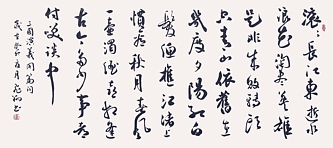 滚滚长江东逝水
浪花淘尽英雄
是非成败转头
空青山依旧在
几度夕阳红白
发渔樵江渚上
惯看秋月春风
一壶浊酒喜相逢
古今多少事都
付笑谈中